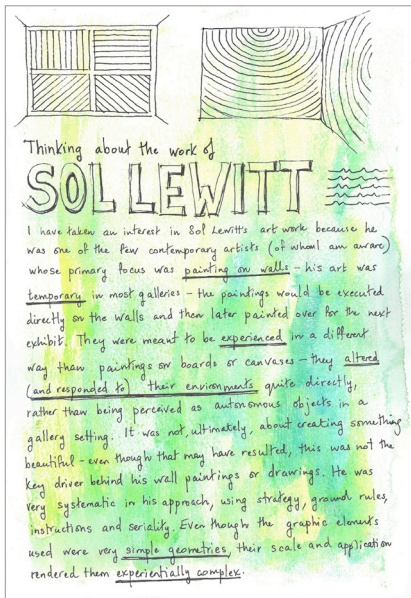 Thinking about the work of
SOL LEWITT
I have taken an interest in Sol Lewitt's art work because he
was one of the few contemporary artists (of whom I am aware)
whose primary focus was painting on walls – his art was
temporary in most galleries – the paintings would be executed
directly on the walls and then later painted over for the next
exhibit. They were meant to be experienced in a different
way than paintings on boards or canvases – they altered
(and responded to) their environments quite directly,
rather than being perceived as autonomous objects in a
gallery setting. It was not, ultimately, about creating something
beautiful – even though that may have resulted, this was not the
key driver behind his wall paintings or drawings. He was
very systematic in his approach, using strategy, ground rules,
instructions and seriality. Even though the graphic elements
used were very simple geometries, their scale and application
rendered them experientially complex.